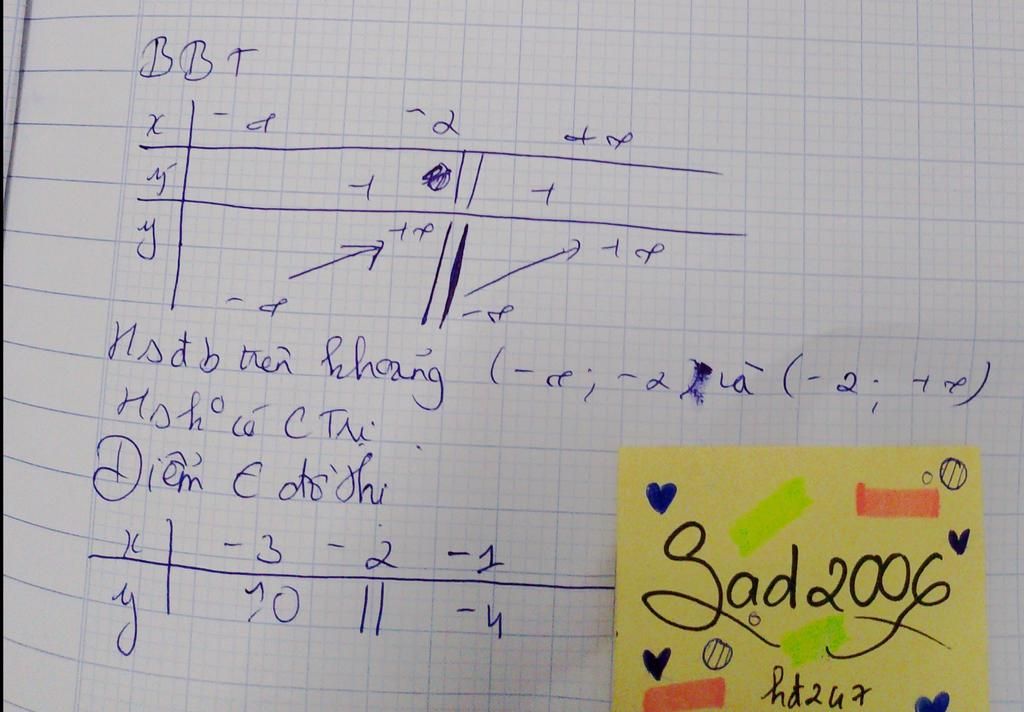 BBT
x | -∞ -2 +∞
y' | + || +
y | +∞ || +∞
-∞ -∞
Hs đb trên khoảng (-∞; -2) và (-2; +∞)
Hs k° có CTrị
Điểm ∈ đồ thị
x | -3 -2 -1
y | 10 || -4
Sad2006
hd247